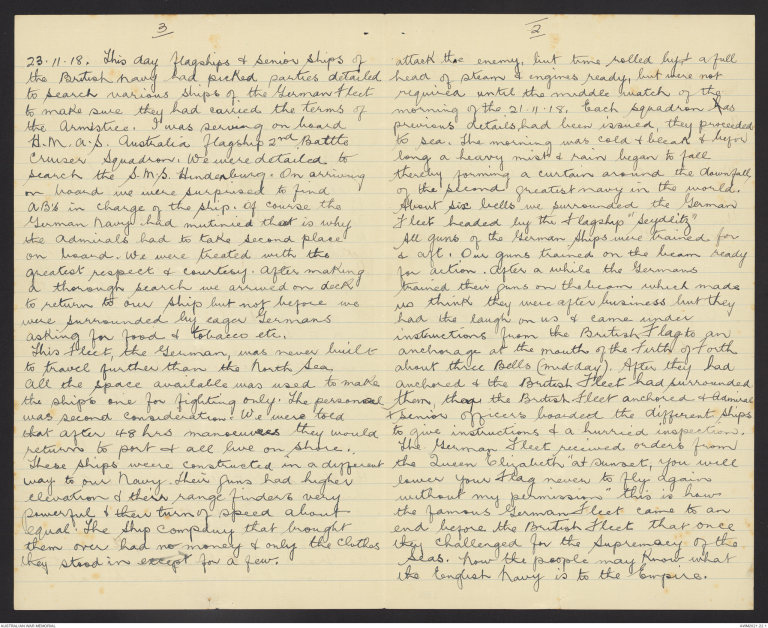 3
23.11.18. This day flagships & senior ships of
the British navy had picked parties detailed
to search various ships of the German Fleet
to make sure they had carried the terms of
the Armistice. I was serving on board
H.M.A.S. Australia flagship 2nd Battle
Cruiser Squadron. We were detailed to
search the S.M.S. Hindenburg. On arriving
on board we were surprised to find
AB's in charge of the ship. Of course the
German Navy had mutinied that is why
the Admirals had to take second place
on board. We were treated with the
greatest respect & courtesy. After making
a thorough search we arrived on deck
to return to our ship but not before we
were surrounded by eager Germans
asking for food & tobacco etc.
This Fleet, the German, was never built
to travel further than the North Sea
All the space available was used to make
the ships one for fighting only. The personael
was second consideration. We were told
that after 48 hrs manoeuvres they would
return to port & all live on shore.
These ships were constructed in a different
way to our Navy. Their guns had higher
elevation & their range finders very
powerful & their turn of speed about
equal. The Ship company that brought
them over had no money & only the clothes
they stood in except for a few.
2
attack the enemy, but time rolled by & a full
head of steam & engines ready, but were not
required until the middle watch of the
morning of the 21.11.18. Each squadron has
previous details had been issued, they proceeded
to sea. The morning was cold & bleak & before
long a heavy mist & rain began to fall
thereby forming a curtain around the downfall
of the second greatest navy in the world.
About six bells we surrounded the German
Fleet headed by the Flagship "Seydlitz"
All guns of the German ships were trained for
& aft. Our guns trained on the beam ready
for action. After a while the Germans
trained their guns on the beam which made
us think they were after business but they
had the laugh on us & came under
instructions from the British Flag to an
anchorage at the mouth of the Firth of Forth
about three Bells (midday). After they had
anchored & the British Fleet had surrounded
them, the British Fleet anchored & Admiral
& senior officers boarded the different ships
to give instructions & a hurried inspection.
The German Fleet received orders from
the Queen Elizabeth "at sunset, you will
lower your Flag never to fly again
without my permission" this is how
the famous German Fleet came to an
end before the British Fleet that once
they challenged for the Supremacy of the
Seas. Now the people may know what
the English Navy is to the Empire.
AUSTRALIAN WAR MEMORIAL